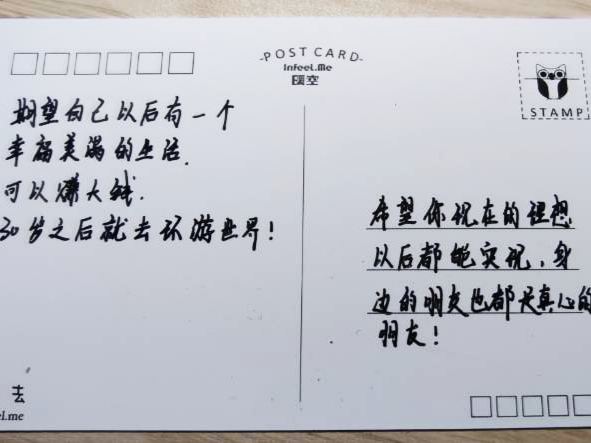 POST CARD
Infeel.Me
STAMP
期望自己以后有一个
幸福美满的生活.
可以赚大钱.
30岁之后就去环游世界!
希望你现在的理想
以后都能实现,身
边的朋友也都是真心的
朋友!
去
el.me